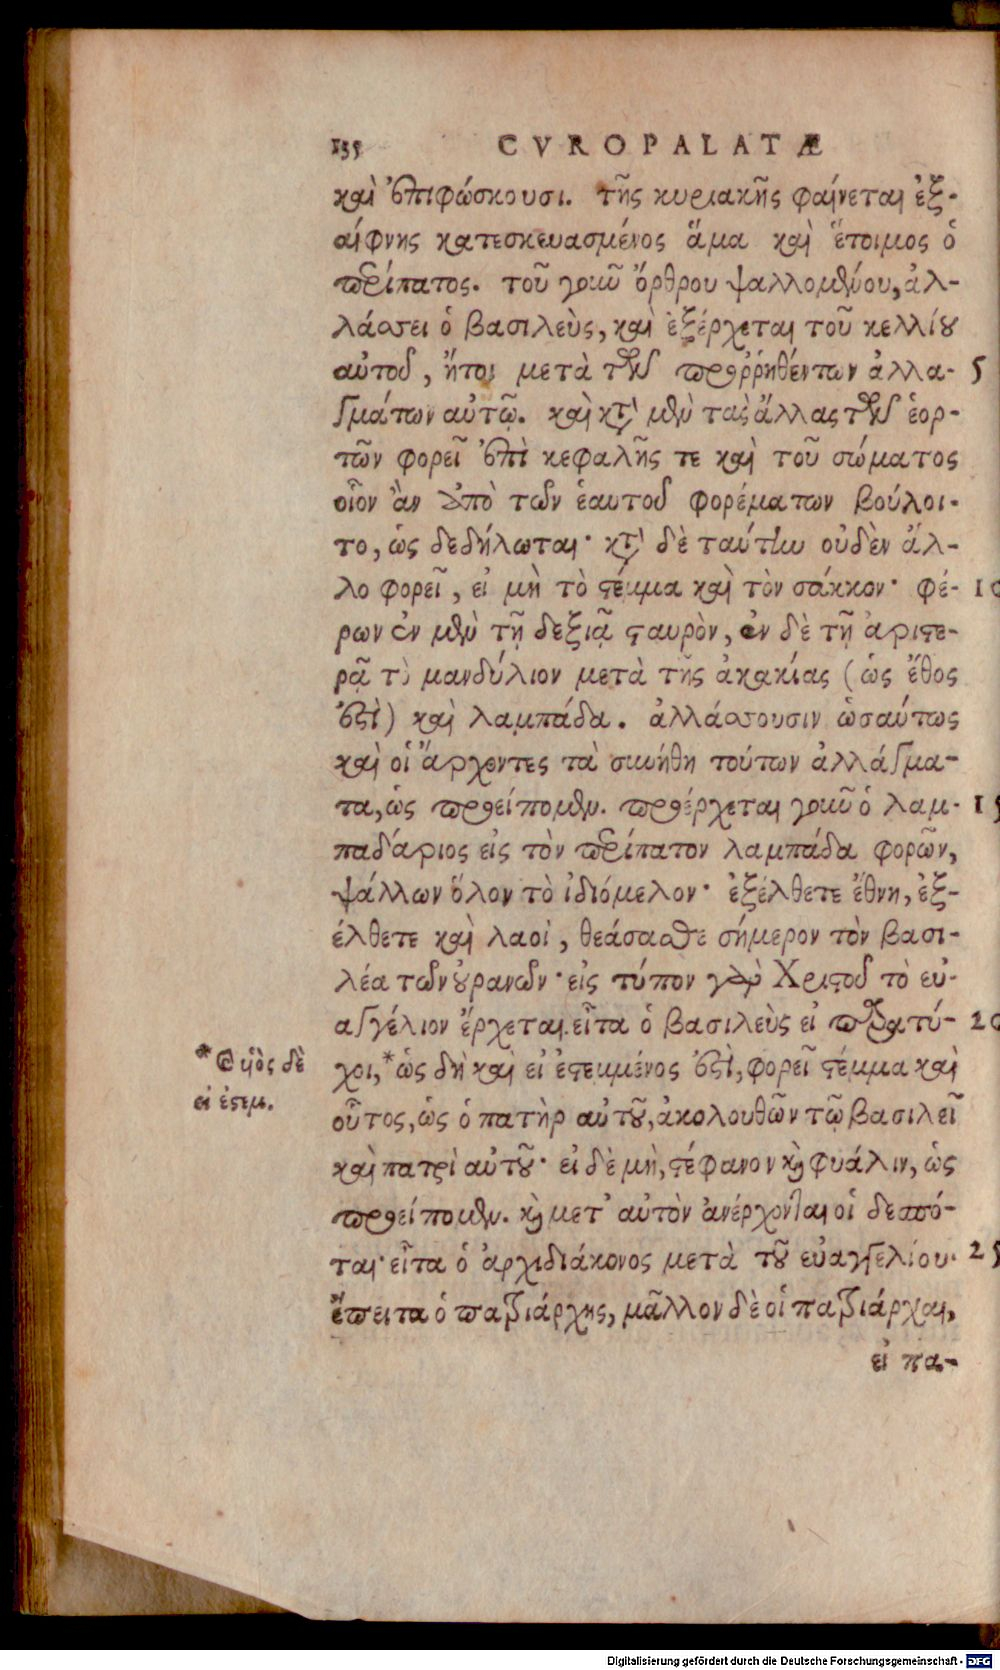 135 CVROPALATÆ
καὶ ἐπιφώσκουσι. τῆς κυριακῆς φαίνεται ἐξ-
αίφνης κατεσκευασμένος ἅμα καὶ ἕτοιμος ὁ
περίπατος. τοῦ γοῦν ὄρθρου ψαλλομένου, ἀλ-
λάσσει ὁ βασιλεὺς, καὶ ἐξέρχεται τοῦ κελλίου
αὐτοῦ, ἤτοι μετὰ τῶν προῤῥηθέντων ἀλλα- 5
γμάτων αὐτῷ. καὶ κατὰ μὲν τὰς ἄλλας τῶν ἑορ-
τῶν φορεῖ ἐπὶ κεφαλῆς τε καὶ τοῦ σώματος
οἷον ἂν ἀπὸ τῶν ἑαυτοῦ φορέματων βούλοι-
το, ὡς δεδήλωται· κατὰ δὲ ταύτην οὐδὲν ἄλ-
λο φορεῖ, εἰ μὴ τὸ στέμμα καὶ τὸν σάκκον· φέ- 10
ρων ἐν μὲν τῇ δεξιᾷ σταυρὸν, ἐν δὲ τῇ ἀριστε-
ρᾷ τὸ μανδύλιον μετὰ τῆς ἀκακίας (ὡς ἔθος
ἐστὶ) καὶ λαμπάδα. ἀλλάσσουσιν ὡσαύτως
καὶ οἱ ἄρχοντες τὰ συνήθη τούτων ἀλλάγμα-
τα, ὡς προείπομεν. προέρχεται γοῦν ὁ λαμ- 15
παδάριος εἰς τὸν περίπατον λαμπάδα φορῶν,
ψάλλων ὅλον τὸ ἰδιόμελον· ἐξέλθετε ἔθνη, ἐξ-
έλθετε καὶ λαοὶ, θεάσασθε σήμερον τὸν βασι-
λέα τῶν οὐρανῶν· εἰς τύπον γὰρ Χριστοῦ τὸ εὐ-
αγγέλιον ἔρχεται. εἶτα ὁ βασιλεὺς εἰ παρατύ- 20
χοι,* ὡς δὴ καὶ εἰ ἐστεμμένος ἐστὶ, φορεῖ στέμμα καὶ
οὗτος, ὡς ὁ πατὴρ αὐτοῦ, ἀκολουθῶν τῷ βασιλεῖ
καὶ πατρὶ αὐτοῦ· εἰ δὲ μὴ, στέφανον καὶ φυάλιν, ὡς
προείπομεν. καὶ μετ' αὐτὸν ἀνέρχονται οἱ δεσπό-
ται· εἶτα ὁ ἀρχιδιάκονος μετὰ τοῦ εὐαγγελίου· 25
ἔπειτα ὁ πατριάρχης, μᾶλλον δὲ οἱ πατριάρχαι,
εἰ πα-
* ὁ υἱὸς δὲ
εἰ ἐστεμ.
Digitalisierung gefördert durch die Deutsche Forschungsgemeinschaft - DFG